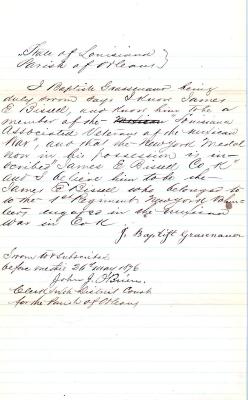 State of Louisiana }
Parish of Orleans }
I Baptiste Grasenauer being
duly sworn says I know James
E Bissell, and know him to be a
member of the "Louisiana
Associated Veterans of the Mexican
War", and that the New York Medal
now in his possession is in-
scribed "James E Bissell Co K
and I believe him to be the
James E Bissell who belonged to
to the 1st Regiment New York Volun-
teers engaged in the Mexican
war in Co K
J. Baptist Grasenauer
Sworn to & subscribed
before me this 26th May 1876
John J. O'Brien
Clerk District Court
for the Parish of Orleans